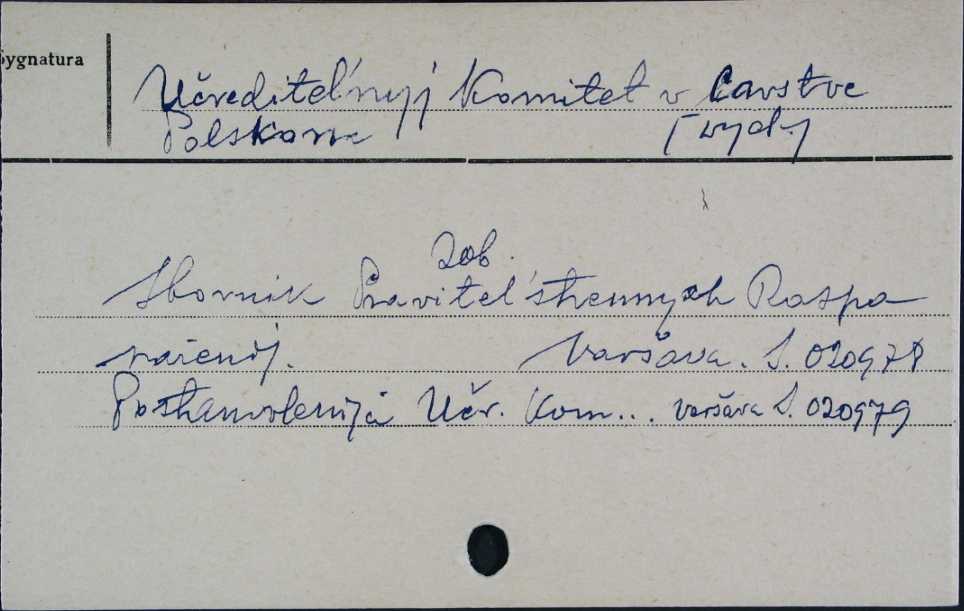 Sygnatura
Učreditel'nyj Komitet v Carstve
Polskom [wyd.]
Zob.
Sbornik Pravitel'stvennych Raspo
rażenij. Varšava. S. 020978
Postanovlenija Učr. Kom... Varšava S. 020979